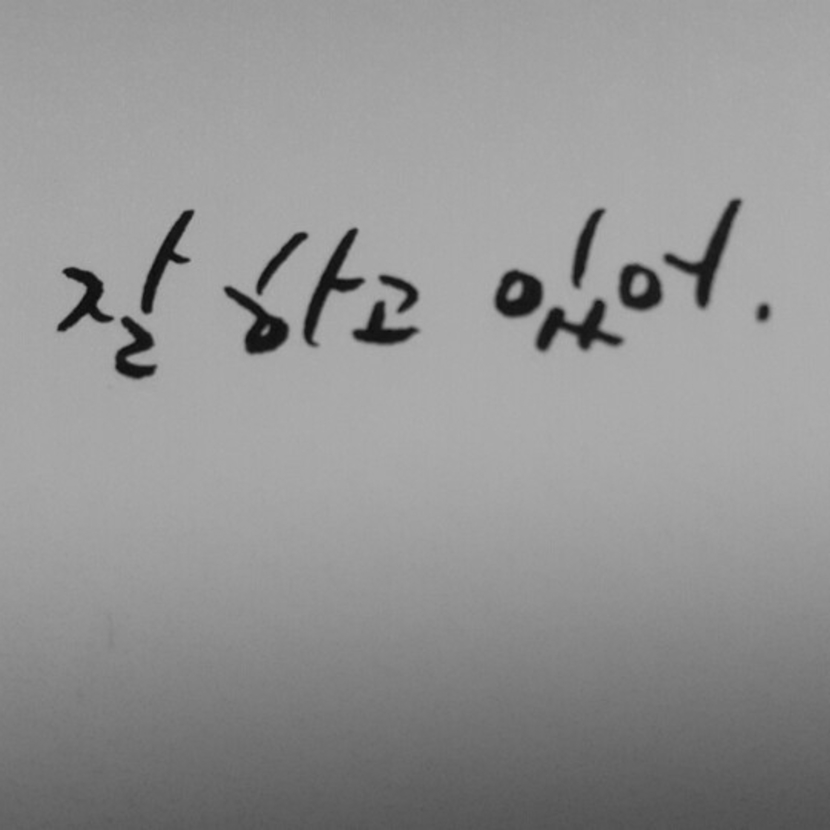 잘 하고 있어.